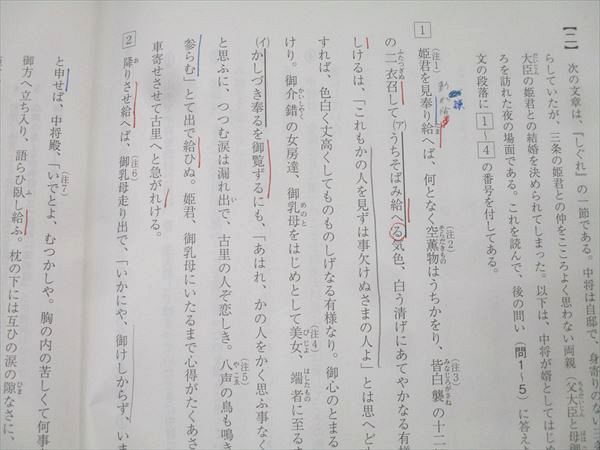 【二】 次の文章は、『しぐれ』の一節である。中将は自邸で、身寄りのない三条
らしていたが、三条の姫君との仲をこころよく思わない両親(父大臣と母御
大臣の姫君との結婚を決められてしまった。以下は、中将が婿としてはじめ
ろを訪れた夜の場面である。これを読んで、後の問い(問1〜5)に答えよ
文の段落に1〜4の番号を付してある。
1 姫君を見奉り給へば、何となく空薫物はうちかをり、皆白襲の十二
の二衣召して、うちそばみ給へる気色、白う清げにあてやかなる有様
しけるは、「これもかの人を見ずは事欠けぬさまの人よ」とは思へど
すれば、色白く丈高くしてものものしげなる有様なり。御心のとまる
けり。御介錯の女房達、御乳母をはじめとして美女、端者に至るま
かしづき奉るを御覧ずるにも、「あはれ、かの人をかく思ふ事なく
と思ふに、つつむ涙は漏れ出で、古里の人ぞ恋しき。八声の鳥も鳴き
参らむ」とて出で給ひぬ。姫君、御乳母にいたるまで心得がたくあさ
車寄せさせて古里へと急がれける。
2 降りさせ給へば、御乳母走り出で、「いかにや、御けしからず、いま
と申せば、中将殿、「いでとよ、むつかしや。胸の内の苦しくて何事
御方へ立ち入り、語らひ臥し給ふ。枕の下には互ひの涙の隙なさに、